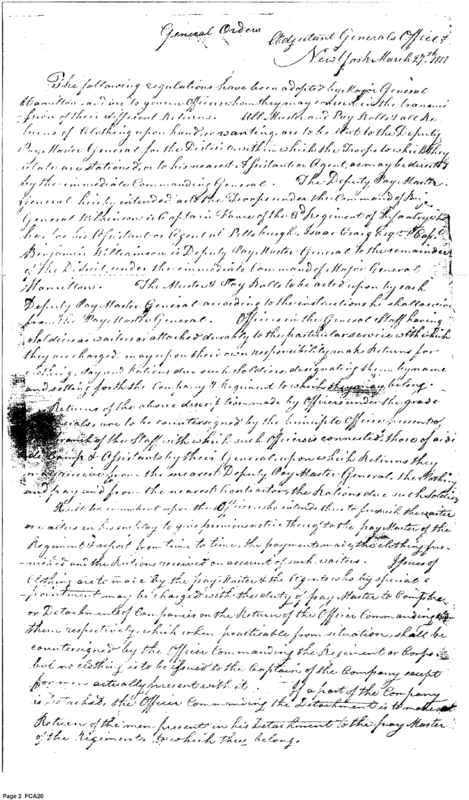 General Orders
Adjutant Generals Office
New York March 27th
The following regulations have been adopted by Major General
Hamilton and are to govern Officers whom they may concern in the
of their different Returns. All Muster and Pay Rolls & all Re-
turns of Clothing upon hand or wanting are to be sent to the Deputy
Pay Master General for the District within which the Troops to which they
relate are stationed or to his nearest Assistant or Agent, as may be directed
by the immediate Commanding General. The Deputy Pay Master
general hereby intended as to the Troops under the Command of
General Wilkinson is Captain of the 3d Regiment of Infantry who
has for his Assistant or Agent at Pittsburgh Isaac Craig Esqr. & Capt.
Benjamin Williamson is Deputy Pay Master General to the remainder
of the District under the immediate Command of Major General
Hamilton. The Muster & Pay Rolls to be acted upon by each
Deputy Pay Master General according to the instructions he shall receive
from the Pay Master General. Officers in the General Staff having
Soldiers as waiters or attached durably to the particular service with which
they are charged may upon their own responsibility make Returns for
Clothing, Pay and Rations due such Soldiers designating them by name
and setting forth the Company & Regiment to which they may belong
Returns of the above description made by Officers under the grade
are to be countersigned by the principle Officer present of
branch of the Staff with which such Officer is connected, those of aids
de Camp & Assistants by their General, upon which Returns they
may receive from the nearest Deputy Pay Master General, the Clothing
and pay and from the nearest Contractor, the Rations due such Soldiers
It will be incumbent upon the Officer who intends thus to furnish the waiter
or waiters in his employ to give previous notice thereof to the pay Master of the
Regiment & report from time to time, the payments made, the clothing fur-
nished and the Rations received on account of such waiters. Issues of
Clothing are to made by the pay Master & the Agents who by special ap-
pointment may be charged with the duty of pay Master to Companies
or Detachments of Companies on the Return of the Officer Commanding
them respectively, which when practicable from situation, shall be
countersigned by the Officer Commanding the Regiment or Corps
but no clothing is to be issued to the Captain of the Company except
for men actually present with it If a part of the Company
is detached, the Officer Commanding the Detachment is to make out
Return of the men present in his Detachment to the pay Master
of the Regiment to which they belong.
Page 2 FCA20